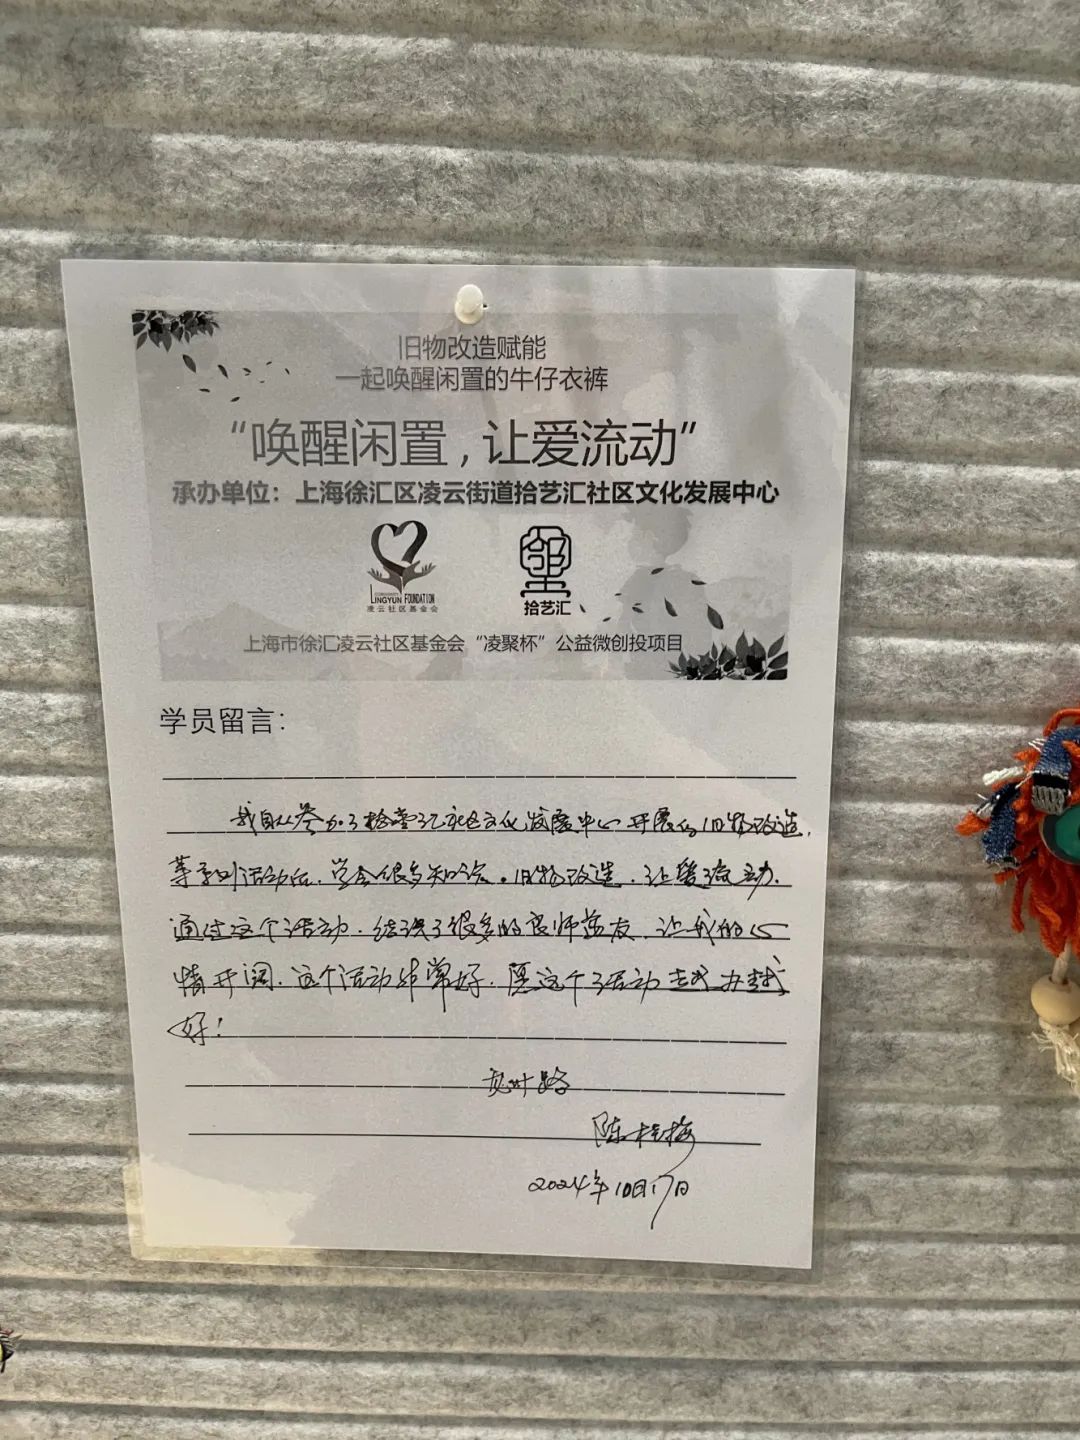 旧物改造赋能
一起唤醒闲置的牛仔衣裤
“唤醒闲置，让爱流动”
承办单位：上海徐汇区凌云街道拾艺汇社区文化发展中心
LINGYUN FOUNDATION
凌云社区基金会
拾艺汇
上海市徐汇凌云社区基金会“凌聚杯”公益微创投项目
学员留言：
我自从参加了拾艺汇社区文化发展中心开展的旧物改造,
等系列活动后,学会很多知识。旧物改造,让爱流动.
通过这个活动,结识了很多的良师益友,让我的心
情开阔.这个活动非常好.愿这个活动越办越
好!
陈桂梅
2024年10月17日